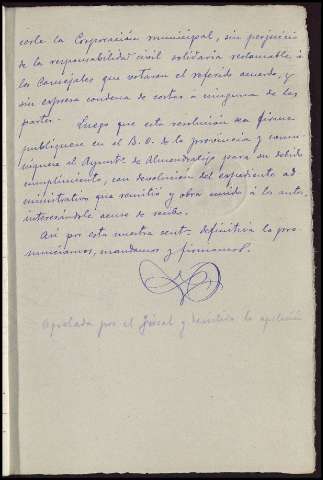 este la Corporación municipal, sin perjuicio
de la responsabilidad civil solidaria reclamable á
los Concejales que votaron el referido acuerdo, y
sin expresa condena de costas á ninguna de las
partes.
Luego que esta resolución sea firme
publíquese en el B. O. de la provincia y comu-
níquese al Ayuntº de Almendralejo para su debido
cumplimiento, con devolución del expediente ad
ministrativo que remitió y obra unido á los autos,
interesándole acuse de recibo.
Así por esta nuestra sentª definitiva lo pro-
nunciamos, mandamos y firmamos.
Apelada por el Fiscal y admitida la apelación